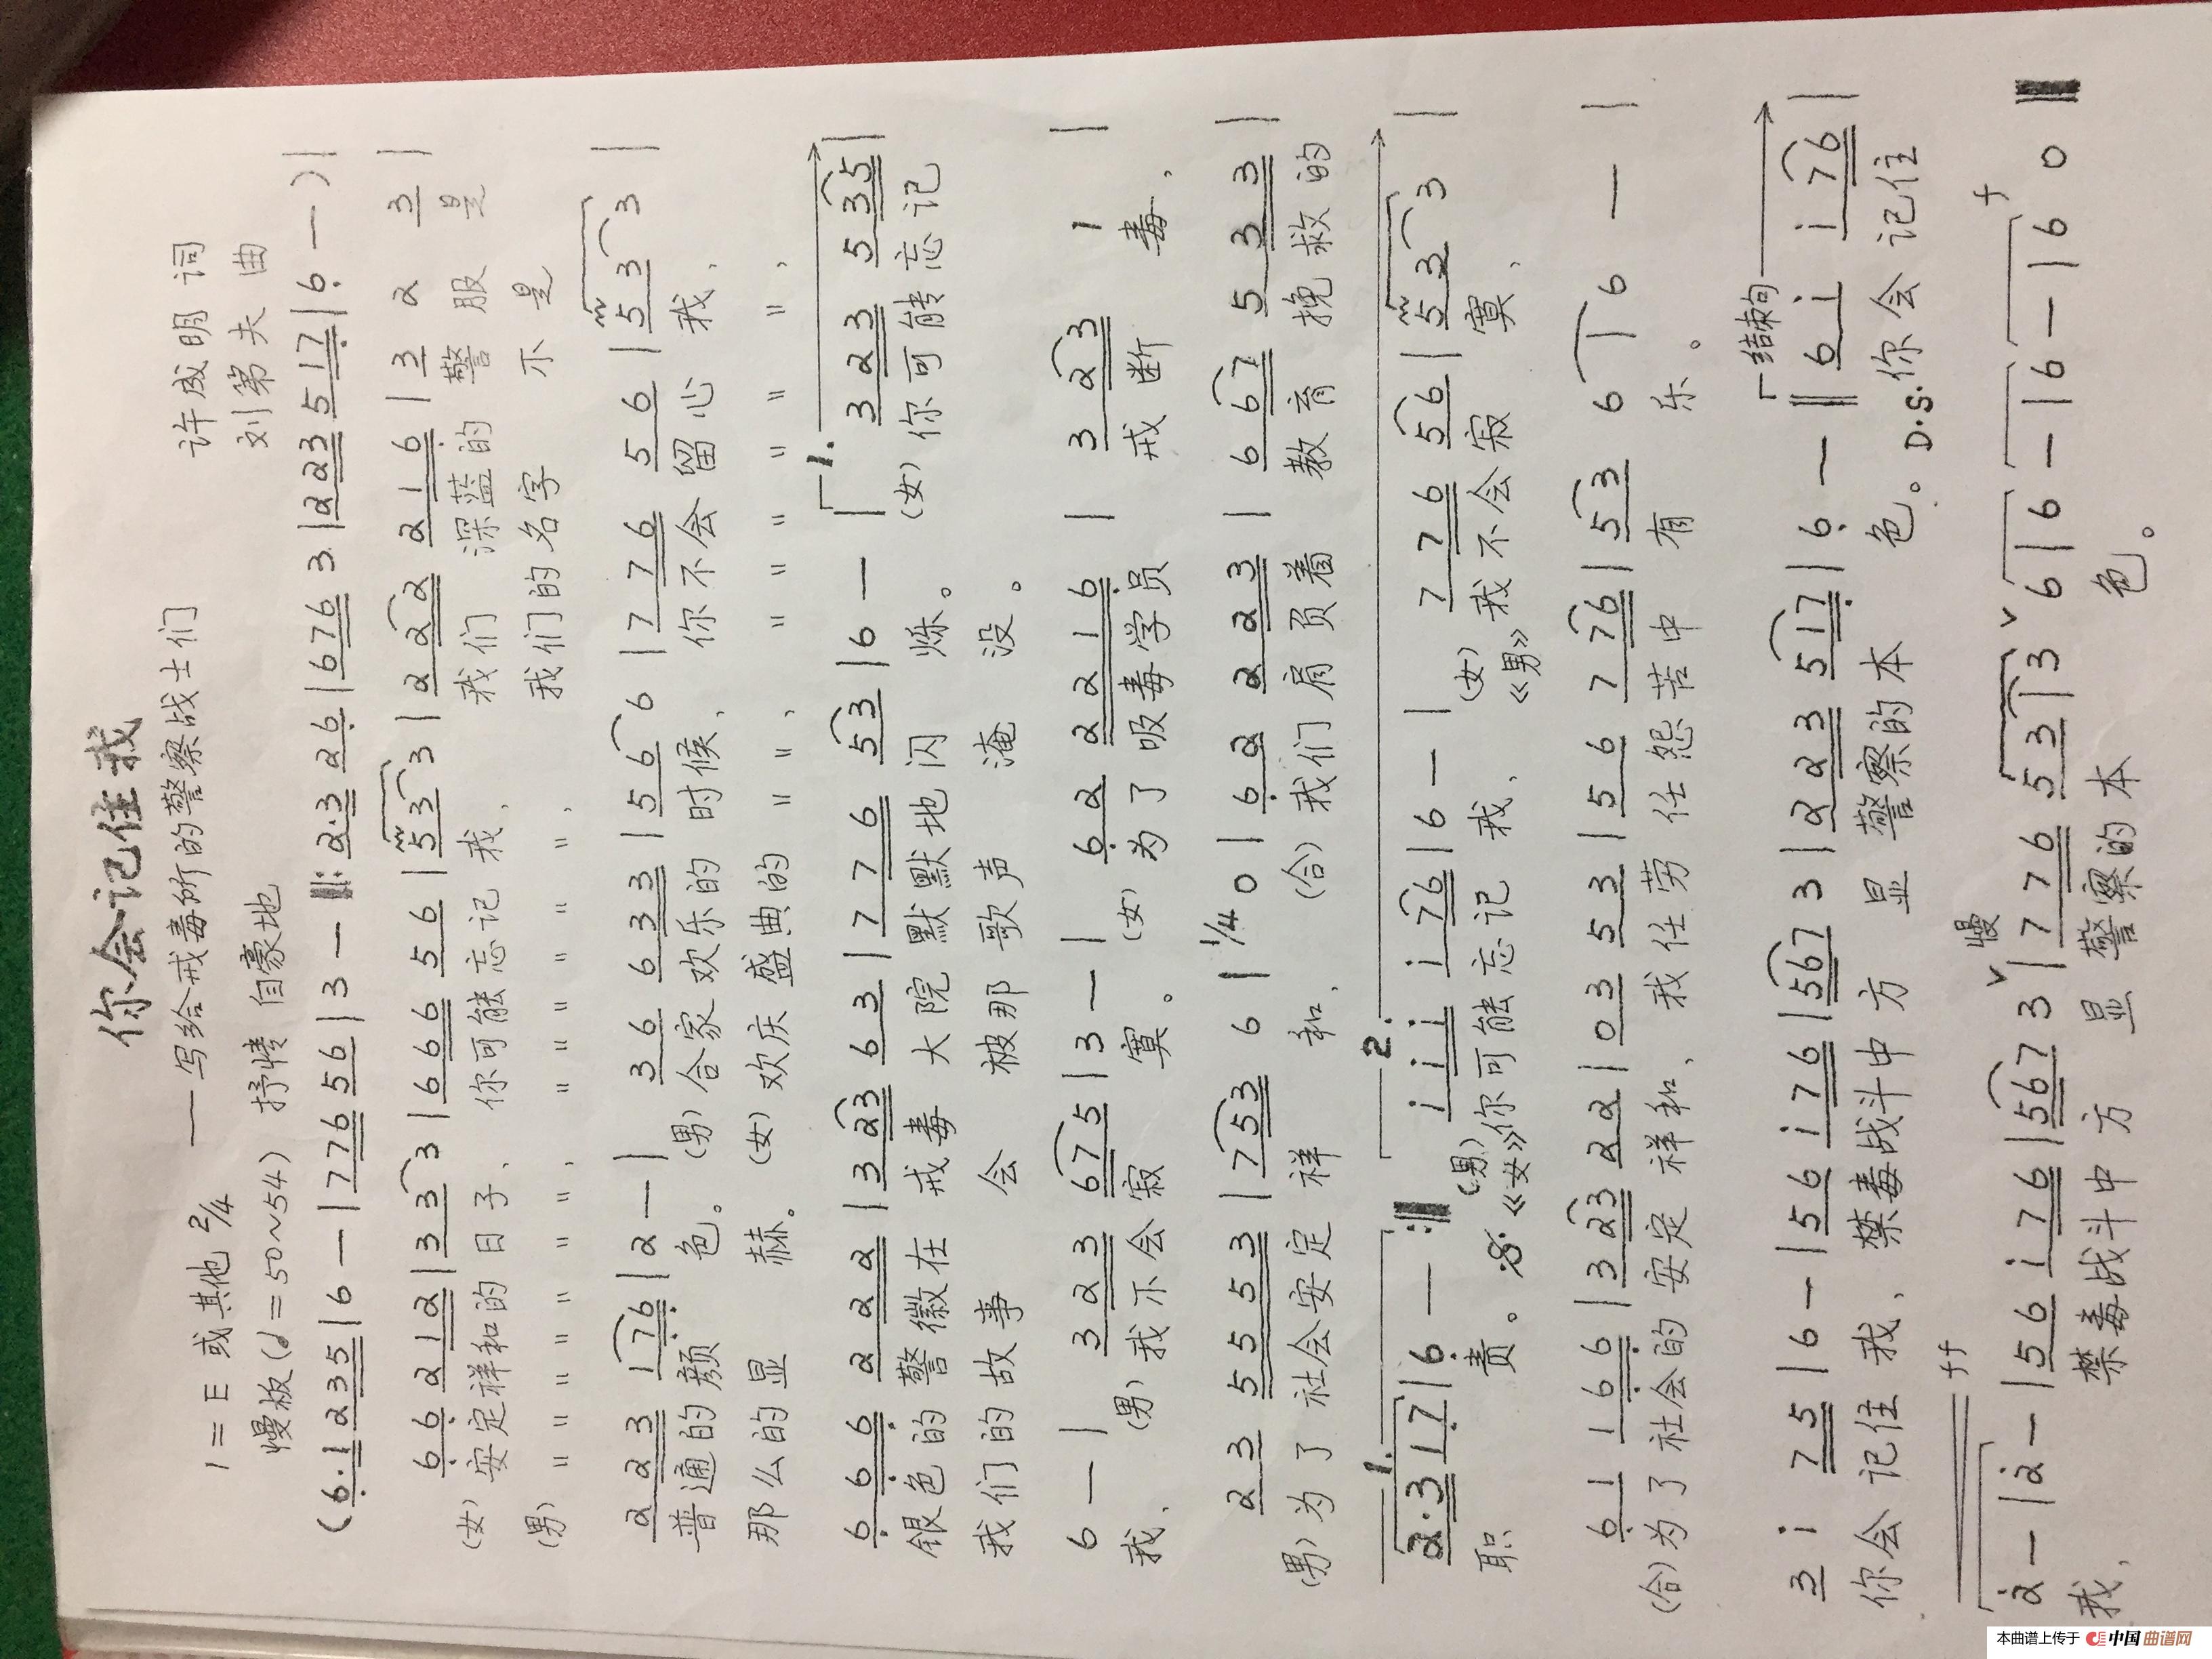 你会记住我
——写给戒毒所的警察战士们
1=E 或其他 2/4
许成明 词
慢板(♩=50~54) 抒情 自豪地
刘第夫 曲
(6·1 2 3 5 | 6 — | 7 7 6 5 6 | 3 — ‖: 2·3 2 6 | 6 7 6 3 | 2 2 3 5 1 7 | 6 — ) |
6 6 2 1 2 | 3 3 3 | 6 6 6 5 6 | 5 3 3 | 2 2 2 2 1 6 | 3 2 3 |
(女) 安定祥和的日子、 你可能忘记我, 我们 深蓝的警服是
(男) 〃 〃 〃 〃 〃 〃 〃、 〃 〃 〃 〃 〃 〃, 我们的名字 不是
2 2 3 1 7 6 | 2 — | 3 6 6 3 3 | 5 6 6 | 7 7 6 5 6 | 5 3 3 |
普通的颜色。 (男) 合家欢乐的时候、 你不会留心我、
那么的显赫。 (女) 欢庆盛典的 〃 〃、 〃 〃 〃 〃 〃 〃、
6 6 6 2 2 2 | 3 2 3 6 3 | 7 7 6 5 3 | 6 — | 1. 3 2 3 5 3 5 |
银色的警徽在戒毒大院默默地闪烁。 (女) 你可能忘记
我们的故事 会 被那歌声 淹没。
6 — | 3 2 3 6 7 5 | 3 — | 6 2 2 2 1 6 | 3 2 3 1 |
我、 (男) 我不会寂寞。 (女) 为了吸毒学员 戒断毒、
2 3 5 5 5 3 | 7 5 3 6 | 1/4 0 | 6 2 2 2 3 | 6 6 7 5 3 3 |
(男) 为了社会安定祥和、 (合) 我们肩负着 教育挽救的
1. 2·3 1 7 | 6 — :‖ 2. i i i i 7 6 | 6 — | 7 7 6 5 6 | 5 3 3 |
职责。 𝄋 (男)《女》你可能忘记我、 (女)《男》我不会寂寞、
6 1 1 6 6 | 3 2 3 2 2 | 0 3 5 3 | 5 6 7 7 6 | 5 3 6 | 6 — |
(合) 为了社会的安定祥和、 我任劳任怨苦中有乐。
3 i 7 5 | 6 — | 5 6 i 7 6 | 5 6 7 3 | 2 2 3 5 1 7 | 6 — ‖ 结束句 6 i i 7 6 |
你会记住我、 禁毒战斗中方显警察的本色。D.S. 你会记住
ff 慢 f
2 — | 2 — | 5 6 i 7 6 | 5 6 7 3 | 7 7 6 5 3 | 3 6 | 6 — | 6 — | 6 0 ‖
我、 禁毒战斗中方显警察的本色。
本曲谱上传于 中国曲谱网